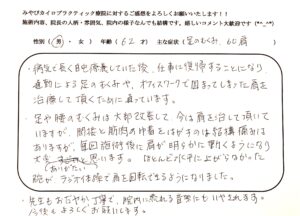 みやびカイロプラクティック療院に対するご感想をよろしくお願いいたします!!
施術内容、院長の人柄・雰囲気、院内の様子なんでも結構です。嬉しいコメント大歓迎です(*^^*)
性別(男・女) 年齢(62才) 主な症状(足のむくみ、60肩)
・病気で長く自宅療養していた後、仕事に復帰することになり
通勤による足のむくみや、オフィスワークで固まってしまった肩を
治療して頂くために通っています。
足や腰のむくみは大部改善して、今は肩を治して頂いて
いますが、関節と筋肉の中
をほがすのは結構痛みは
ありますが、毎回施術後に肩が明らかに動くようになり
大変 ありがたい と思います。ほとんど水平に上がらなかった
腕が、ラジオ体操で肩を回転できるようになりました。
・先生もおだやか丁寧で、院内に流れる音楽にもいやされます。
今後もよろしくお願いします。